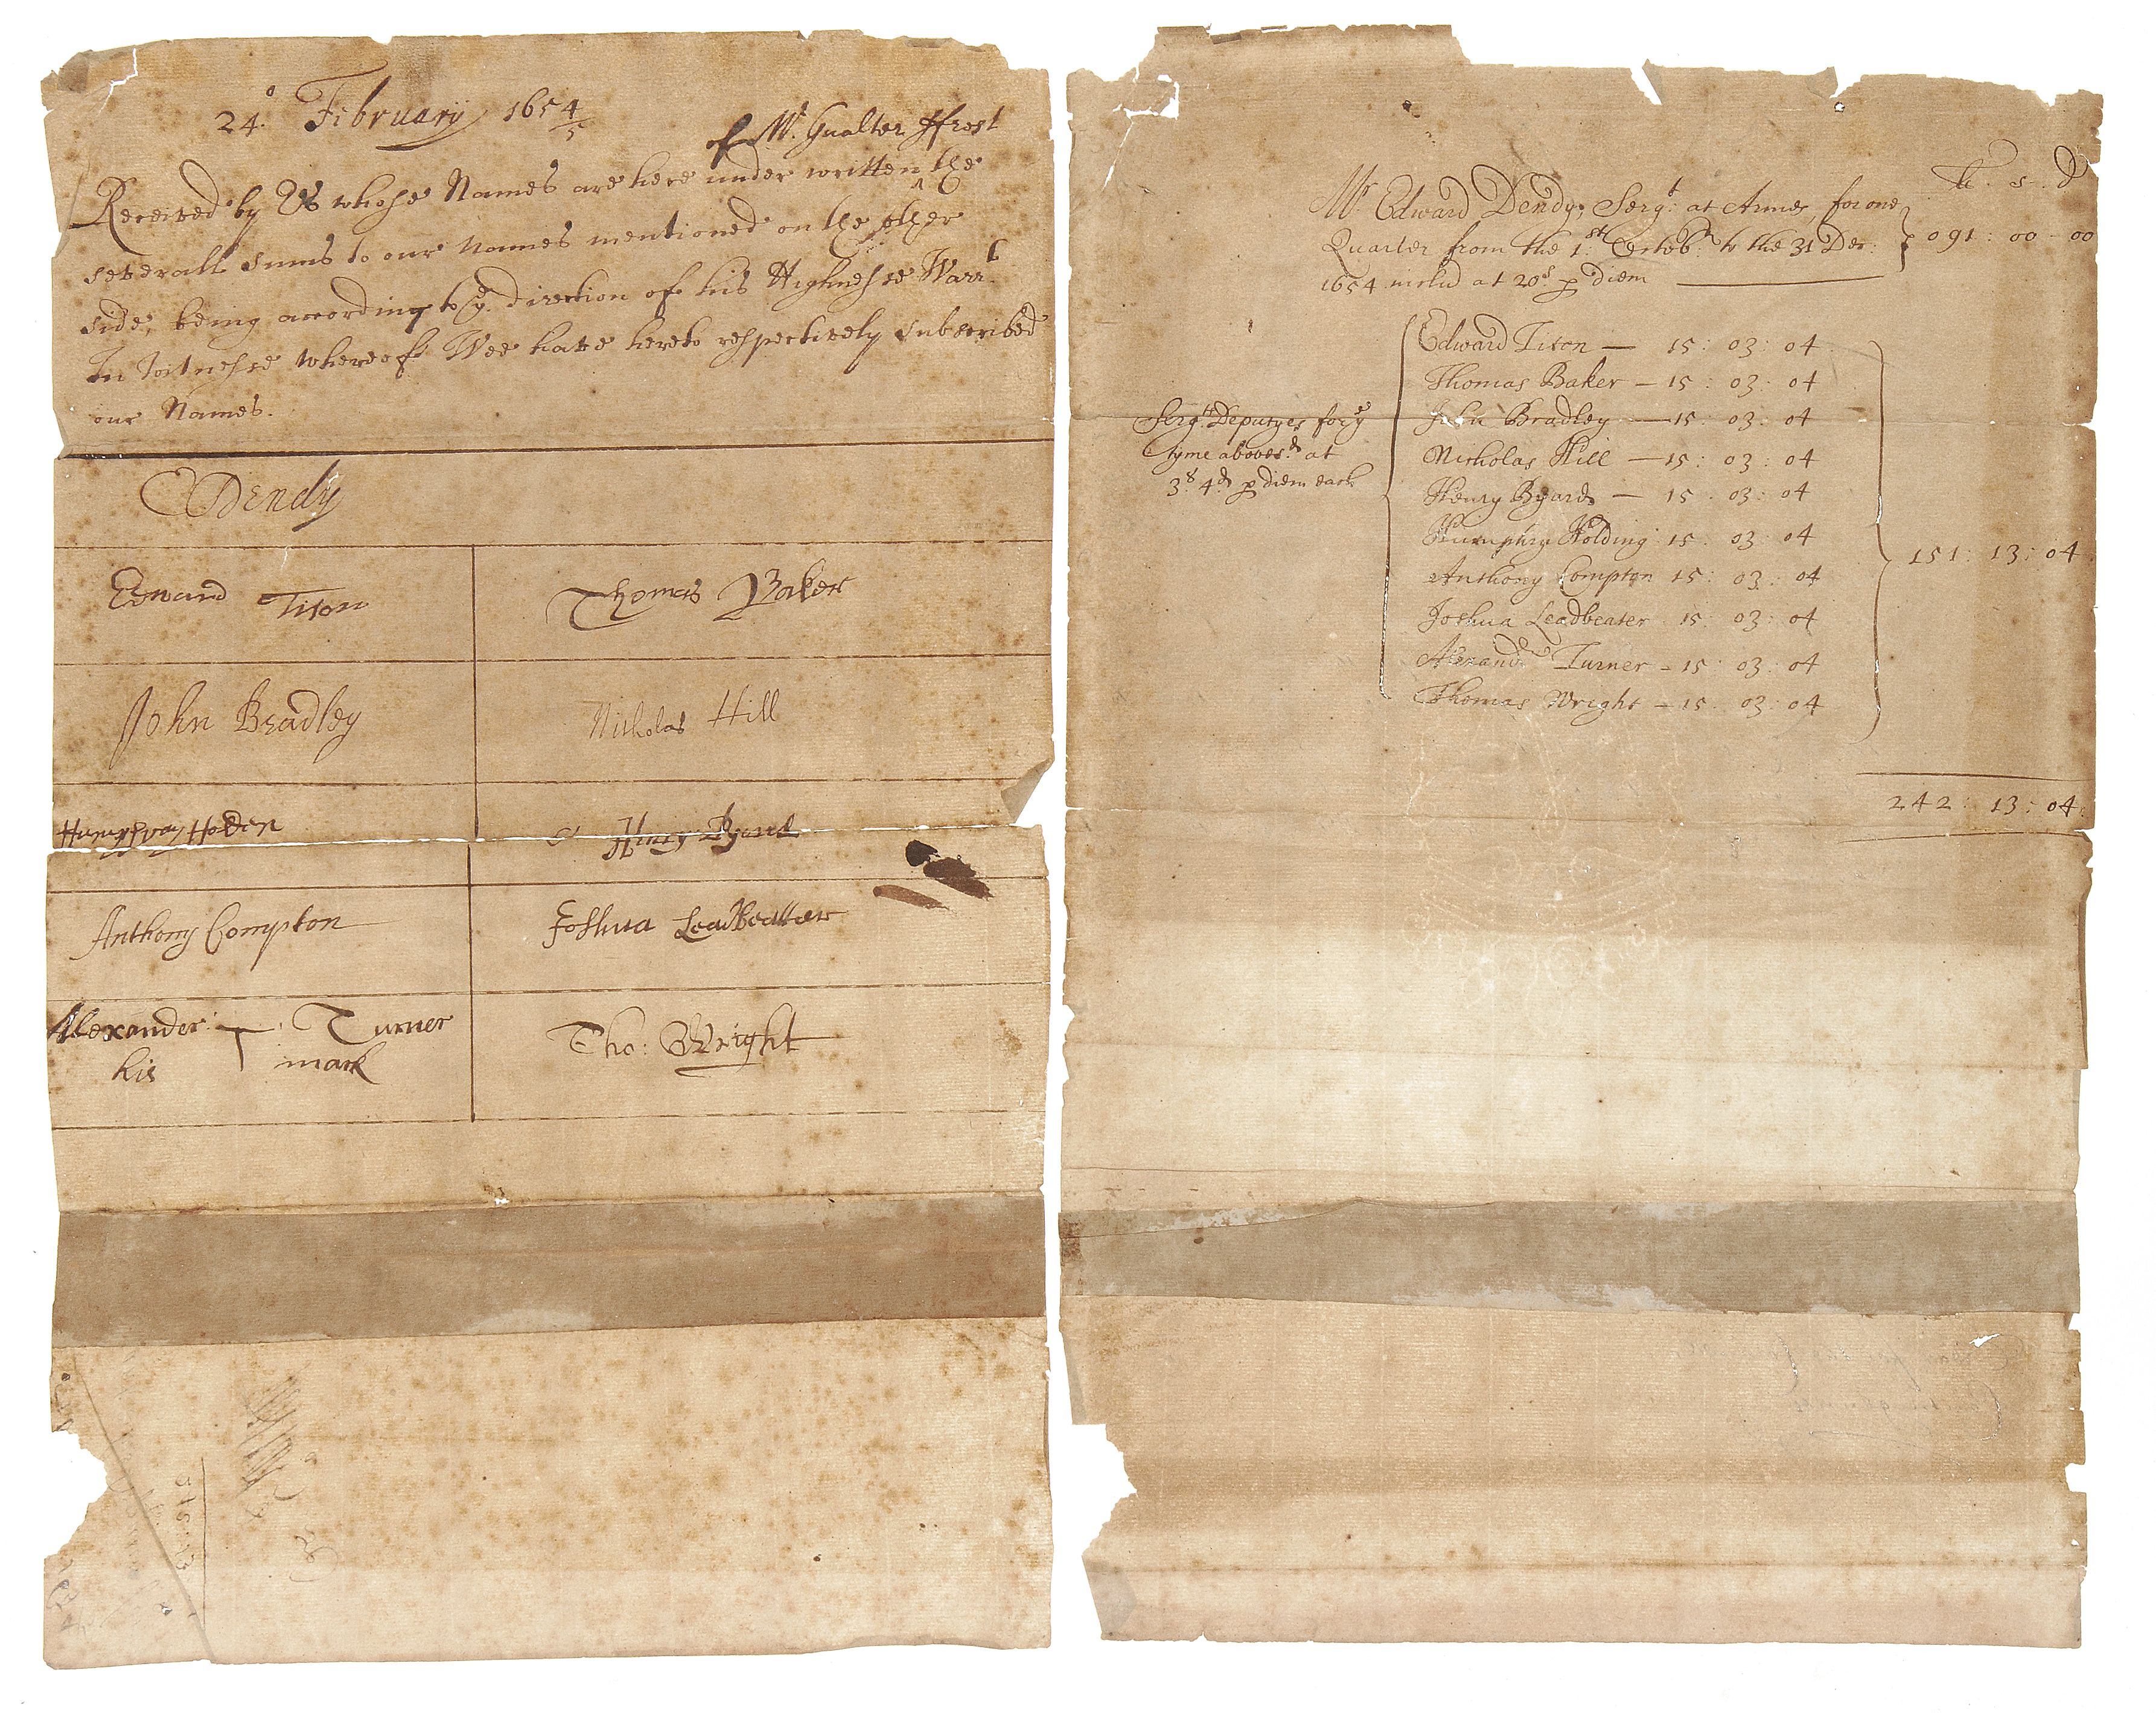 24.° February 1654/5
of Mr. Gualter ffrost
Received by Us whose Names are here under written ^ the
severall sums to our Names mentioned on the other
side, being according to ye. direction of his Highnesse Warrt.
In Witnesse whereof Wee have hereto respectively subscribed
our Names.
EDendy
Edward Tison
Thomas Baker
John Bradley
Nicholas Hill
Humphray Holden
Henry Byard
Anthony Compton
Joshua Leadbeatter
Alexander T Turner
his mark
Tho: Wright
li. s. D
Mr. Edward Dendy, Sergt. at Armes, for one
Quarter from the 1.st Octobr. to the 31 Dec: } 091 : 00 - 00
1654 includ at 20s p diem
Edward Tison — 15 : 03 : 04
Thomas Baker — 15 : 03 : 04
John Bradley — 15 : 03 : 04
Nicholas Hill — 15 : 03 : 04
Henry Byard — 15 : 03 : 04
Humphry Holding 15 : 03 : 04
Anthony Compton 15 : 03 : 04
Joshua Leadbeater 15 : 03 : 04
Alexandr Turner - 15 : 03 : 04
Thomas Wright - 15 : 03 : 04
Sergts. Deputyes for ye
tyme abovesd. at
3s. 4d p diem each
151 : 13 : 04
242 : 13 : 04